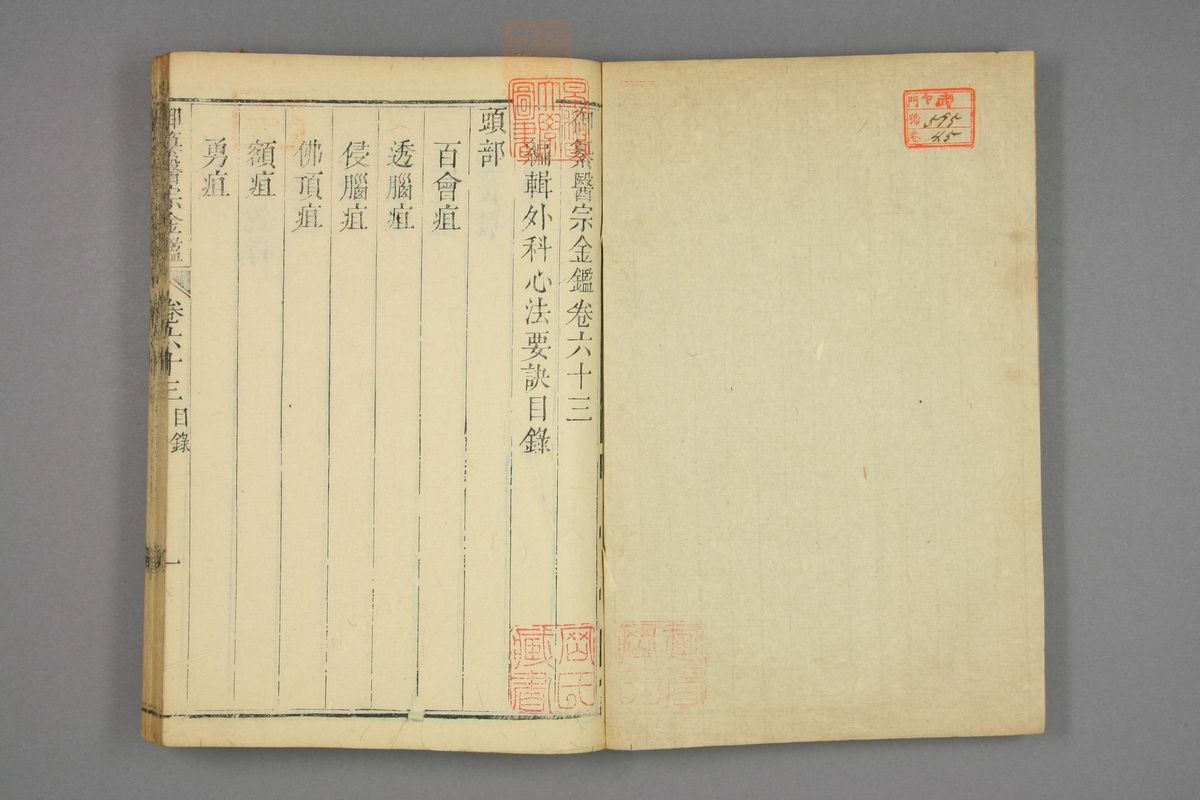 御纂醫宗金鑑卷六十三
編輯外科心法要訣目錄
頭部
百會疽
透腦疽
侵腦疽
佛頂疽
額疽
勇疽
御纂醫宗金鑑 卷六十三 目錄 一
門 号
595
卷 25